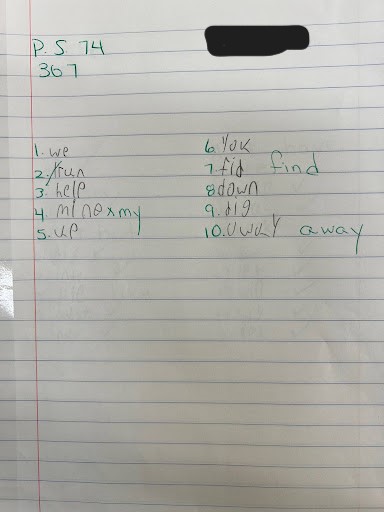 P.S. 74
367
1. we
2. run
3. help
4. mine x my
5. up
6. You
7. fid find
8 down
9. dig
10. away away